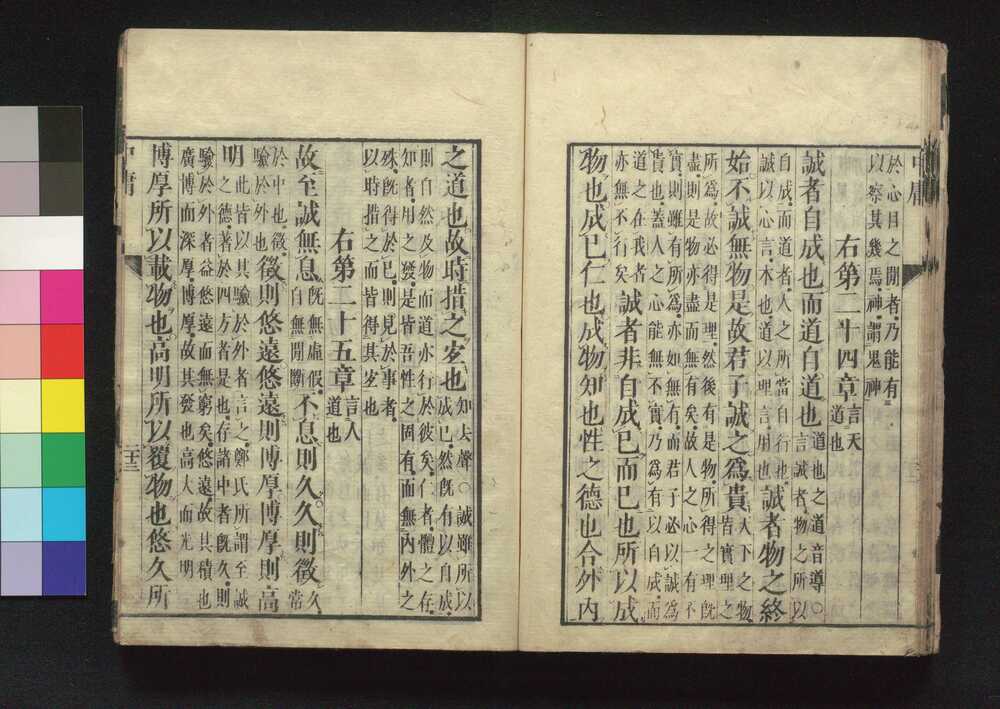 中庸
於心目之閒者乃能有
以察其幾焉神謂鬼神
右第二十四章 言天
道也
誠者自成也而道自道也 道也之道音導○
言誠者物之所以
自成而道者人之所當自行也
誠以心言本也道以理言用也 誠者物之終
始不誠無物是故君子誠之爲貴 天下之物
皆實理之
所爲故必得是理然後有是物所得之理旣
盡則是物亦盡而無有矣故人之心一有不
實則雖有所爲亦如無有而君子必以誠爲
貴也蓋人之心能無不實乃爲有以自成而
道之在我者
亦無不行矣 誠者非自成己而已也所以成
物也成己仁也成物知也性之德也合外內
之道也故時措之宐也 知去聲○誠雖所以
成己然旣有以自成
則自然及物而道亦行於彼矣仁者體之存
知者用之發是皆吾性之固有而無內外之
殊旣得於己則見於事者
以時措之而皆得其宐也
右第二十五章 言人
道也
故至誠無息 旣無虛假
自無閒斷 不息則久久則徵 久
常
於中也徵
驗於外也 徵則悠遠悠遠則博厚博厚則高
明 此皆以其驗於外者言之鄭氏所謂至誠
之德著於四方者是也存諸中者旣久則
驗於外者益悠遠而無窮矣悠遠故其積也
廣博而深厚博厚故其發也高大而光明
博厚所以載物也高明所以覆物也悠久所
中庸
二十三